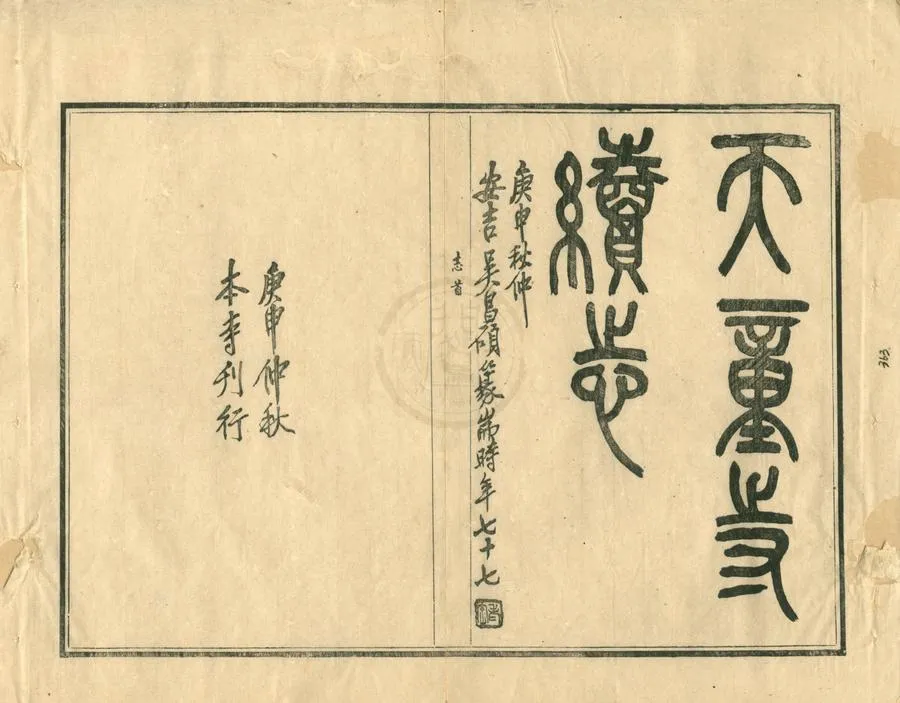 天童寺
續志
庚申秋仲
安吉吳昌碩篆耑時年七十七
志首
庚申仲秋
本寺刊行
363